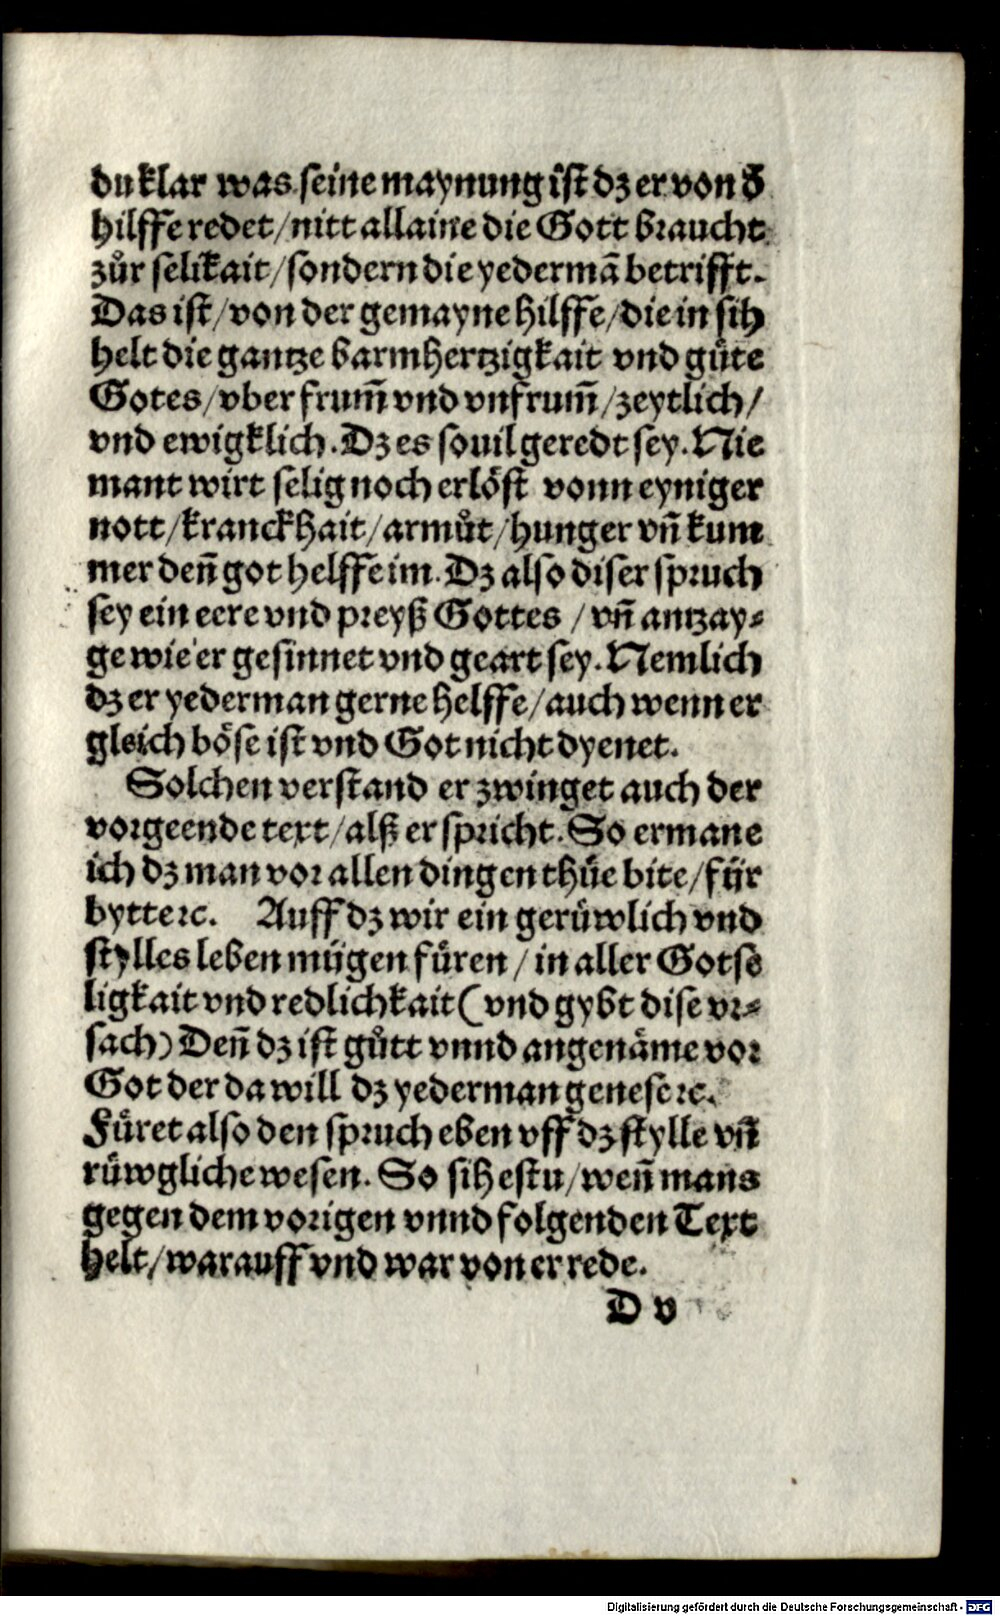 du klar was seine maynung ist dz er von d̕
hilffe redet/nitt allaine die Gott braucht
zůr selikait/sondern die yedermā betrifft.
Das ist/von der gemayne hilffe/die in sih
helt die gantze barmhertzigkait vnd gůte
Gotes/vber frum̄ vnd vnfrum̄/zeytlich/
vnd ewigklich. Dz es souil geredt sey. Nie
mant wirt selig noch erlöst vonn eyniger
nott/kranckhait/armůt/hunger vn̄ kum
mer den̄ got helffe im. Dz also diser spruch
sey ein eere vnd preyß Gottes / vn̄ antzay⸗
ge wie er gesinnet vnd geart sey. Nemlich
dz er yederman gerne helffe/auch wenn er
gleich böse ist vnd Got nicht dyenet.
Solchen verstand er zwinget auch der
vorgeende text/alß er spricht. So ermane
ich dz man vor allen dingen thüe bite/für
bytt ⁊c. Auff dz wir ein gerüwlich vnd
stylles leben mügen füren / in aller Gotse
ligkait vnd redlichkait (vnd gybt dise vr⸗
sach) Den̄ dz ist gůtt vnnd angenäme vor
Got der da will dz yederman genese ⁊c.
Füret also den spruch eben vff dz stylle vn̄
rüwgliche wesen. So sihestu/wen̄ mans
gegen dem vorigen vnnd folgenden Text
helt/warauff vnd war von er rede.
D v
Digitalisierung gefördert durch die Deutsche Forschungsgemeinschaft - DFG